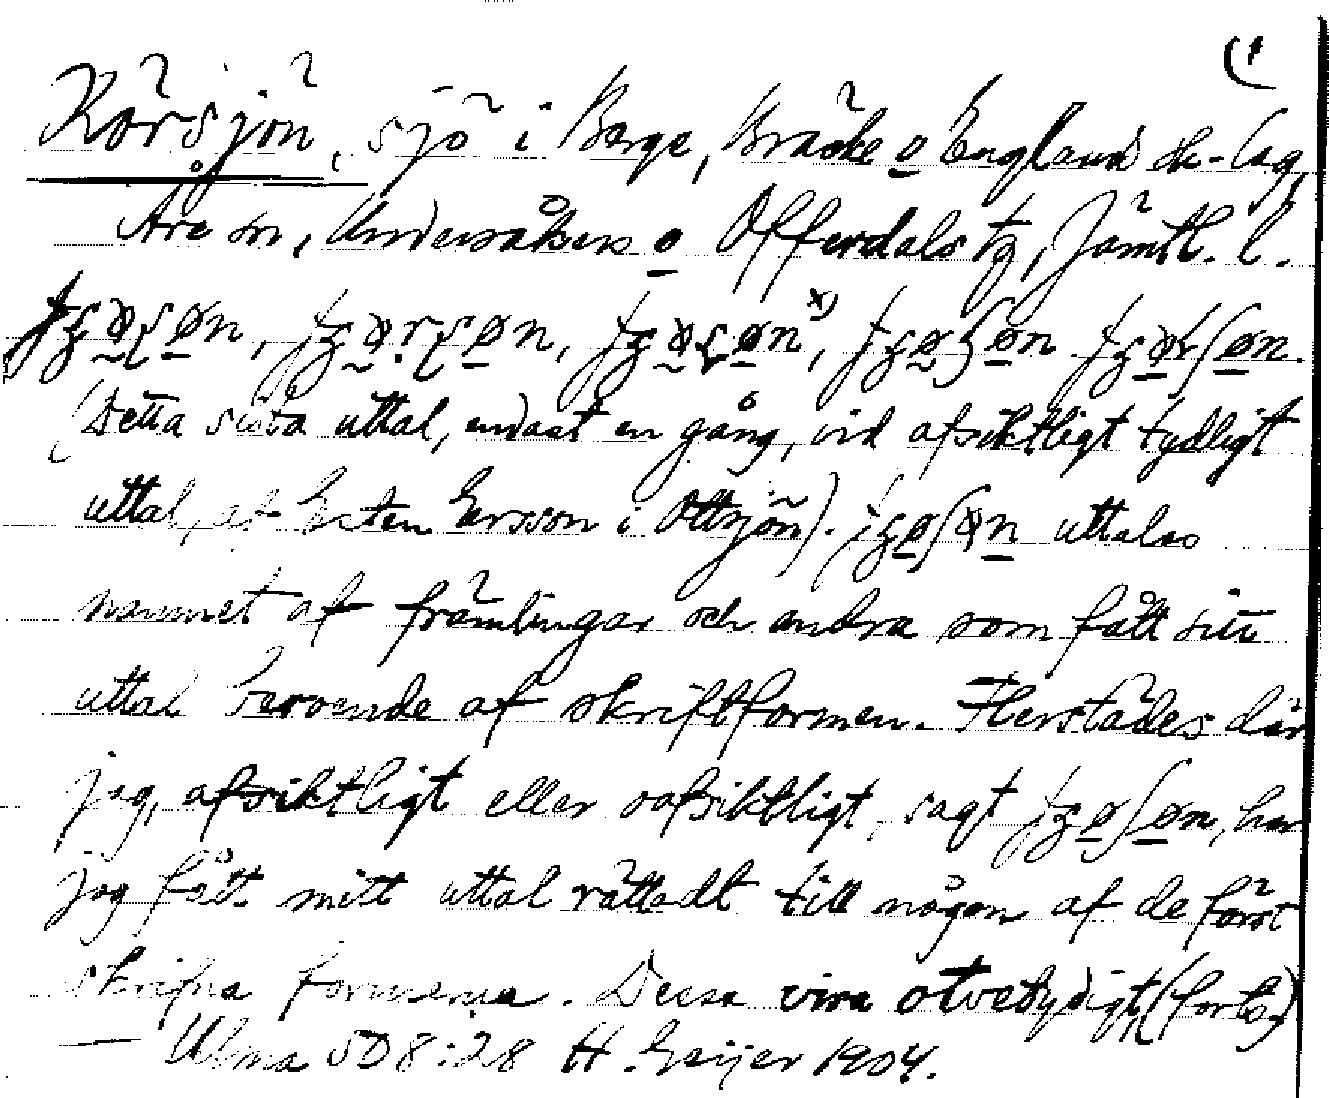 (1
Körsjön, sjö i Berge, Bräcke o England sk-lag,
Åre sn, Undersåkers o Offerdals tg, Jämtl. l.
(Detta sista uttal, endast en gång, vid afsiktligt tydligt
uttal, af Esten Ersson i Ottsjön). uttalas
namnet af främlingar och andra som fått sitt
uttal beroende af skriftformen. Flerstädes där
jag, afsiktligt eller oafsiktligt, sagt , har
jag fått mitt uttal rättadt till någon af de först
skrifna formerna. Dessa visa otvetydigt, (forts.)
— Ulma 508:28 H. Geijer 1904.